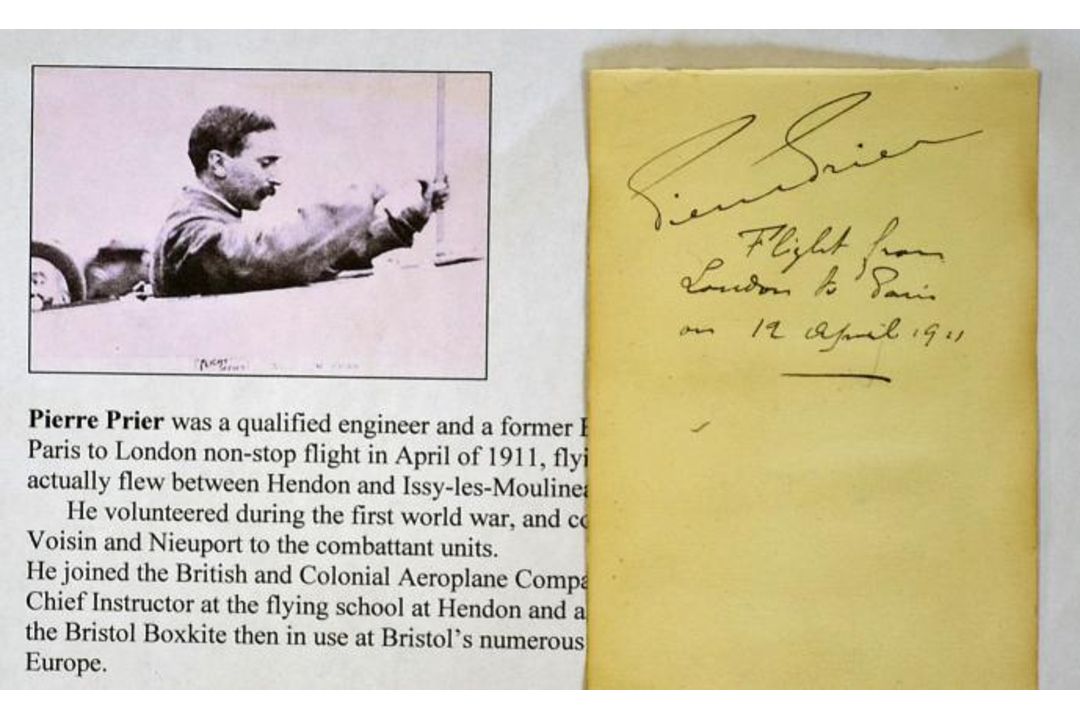 Pierre Prier
Flight from
London to Paris
on 12 April 1911
FLIGHT
Pierre Prier was a qualified engineer and a former
Paris to London non-stop flight in April of 1911, flyi
actually flew between Hendon and Issy-les-Mouline
He volunteered during the first world war, and co
Voisin and Nieuport to the combattant units.
He joined the British and Colonial Aeroplane Compa
Chief Instructor at the flying school at Hendon and a
the Bristol Boxkite then in use at Bristol's numerous
Europe.